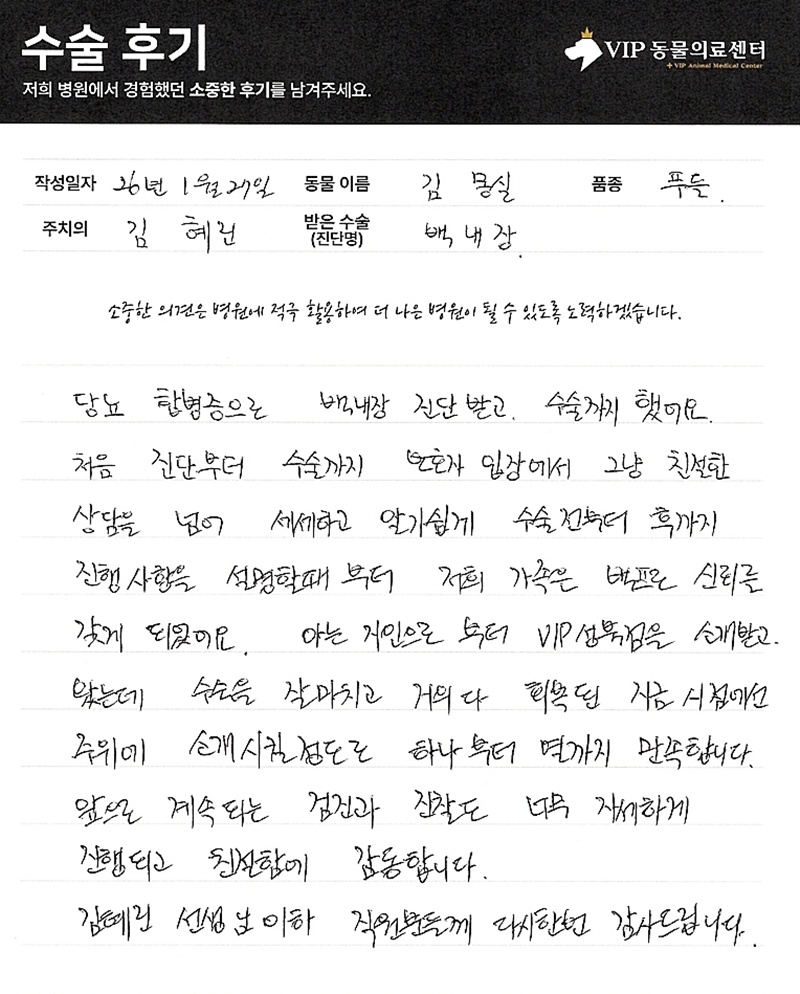 수술 후기
저희 병원에서 경험했던 소중한 후기를 남겨주세요.
VIP 동물의료센터
+ VIP Animal Medical Center
작성일자 26년 1월 27일 동물 이름 김 몽실 품종 푸들.
주치의 김 혜린 받은 수술 (진단명) 백내장.
소중한 의견은 병원에 적극 활용하여 더 나은 병원이 될 수 있도록 노력하겠습니다.
당뇨 합병증으로 백내장 진단 받고. 수술까지 했어요.
처음 진단부터 수술까지 보호자 입장에서 그냥 친절한
상담을 넘어 세세하고 알기쉽게 수술전부터 후까지
진행사항을 설명할때 부터 저희 가족은 백프로 신뢰를
갖게 되었어요. 아는 지인으로 부터 VIP성북점을 소개받고.
왔는데 수술을 잘마치고 거의 다 회복된 지금 시점에선
주위에 소개시킬정도로 하나부터 열까지 만족합니다.
앞으로 계속 되는 검진과 진찰도 너무 자세하게
진행되고 친절함에 감동합니다.
김혜린 선생님 이하 직원분들께 다시한번 감사드립니다.